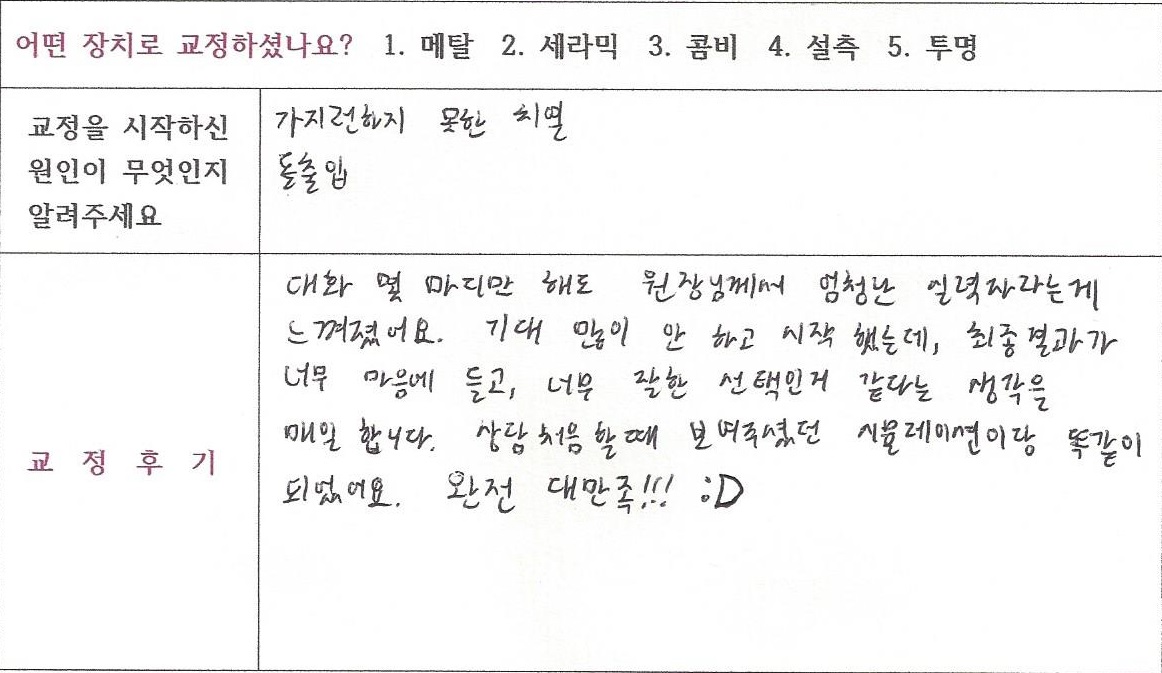 어떤 장치로 교정하셨나요? 1. 메탈 2. 세라믹 3. 콤비 4. 설측 5. 투명
교정을 시작하신
원인이 무엇인지
알려주세요
가지런하지 못한 치열
돌출입
교 정 후 기
대화 몇 마디만 해도 원장님께서 엄청난 실력자라는게
느껴졌어요. 기대 많이 안 하고 시작 했는데, 최종결과가
너무 마음에 들고, 너무 잘한 선택인거 같다는 생각을
매일 합니다. 상담 처음 할 때 보여주셨던 시뮬레이션이랑 똑같이
되었어요. 완전 대만족!!! :D